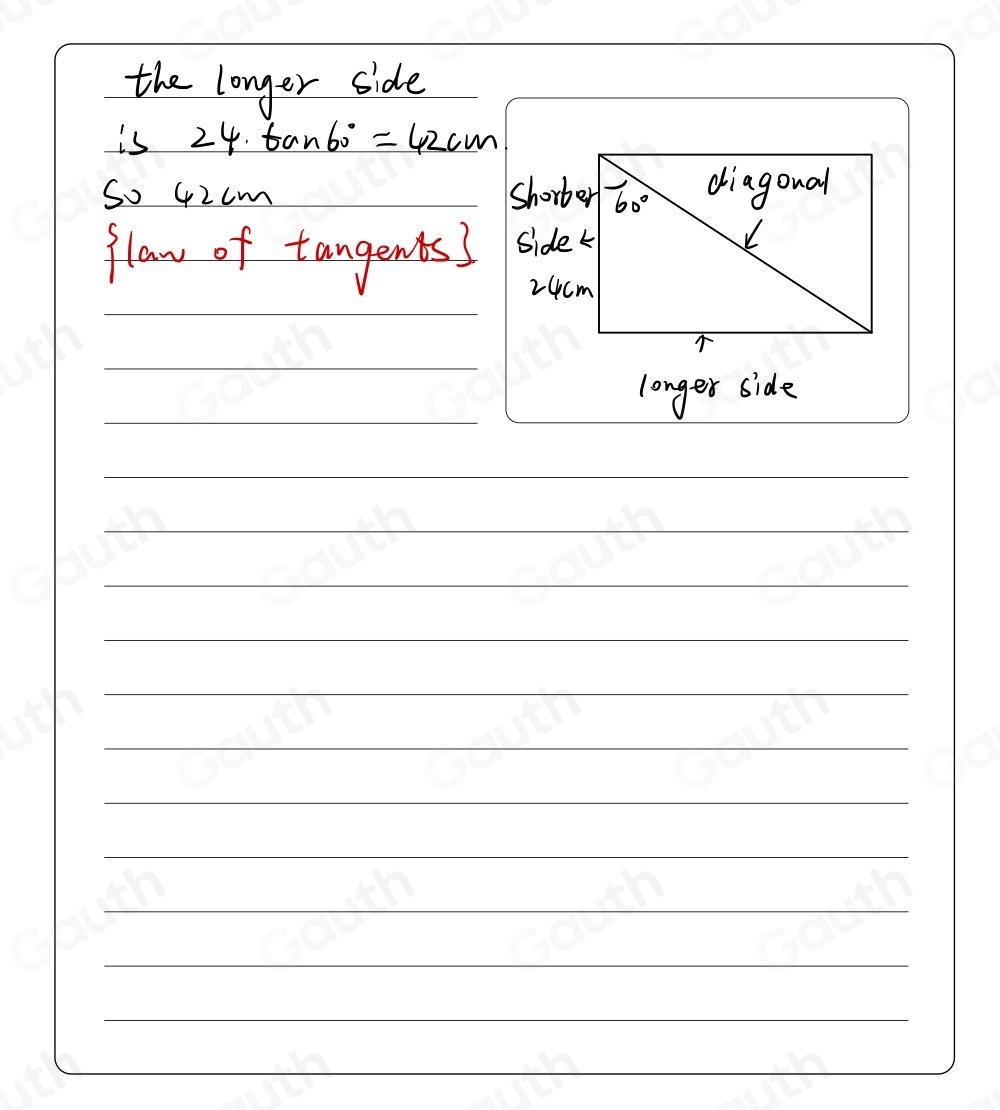 the longer side
is 24. tan60° = 42cm.
So 42cm
{law of tangents}
Shorter
side
24cm
60°
diagonal
longer side
Gauth